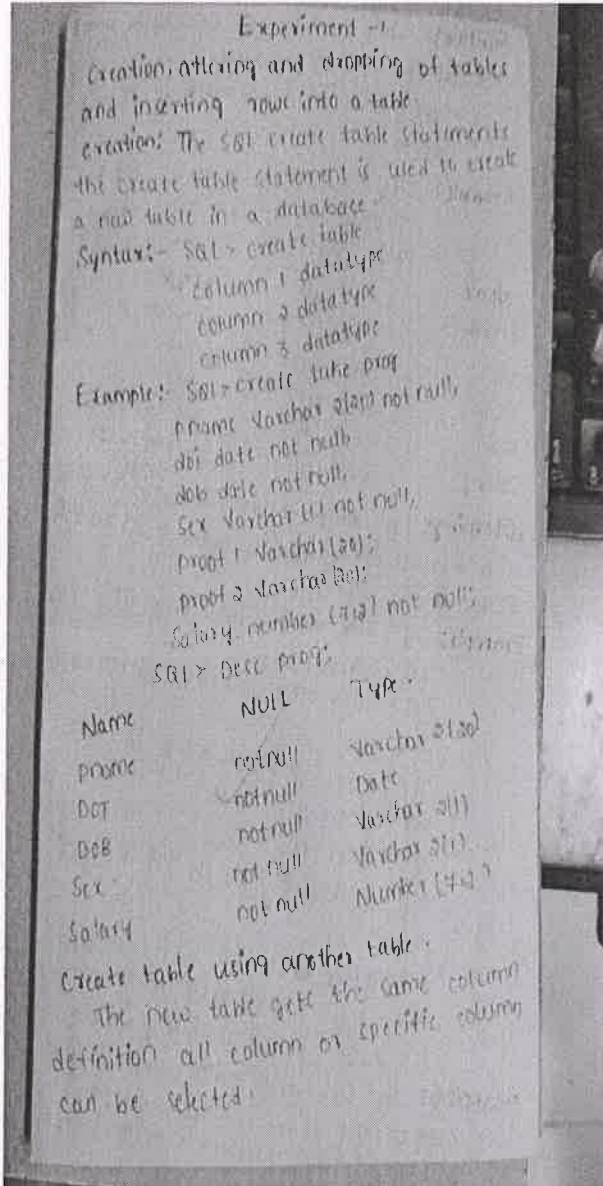 Experiment -1
creation, altering and dropping of tables
and inserting rows into a table
creation: The SQl create table statements
the create table statement is used to create
a new table in a database.
Syntax:- SQl > create table
column 1 datatype
column 2 datatype
column 3 datatype
Example:- SQl > create table prog
pname Varchar 2(20) not null,
doj date not null,
dob date not null,
Sex Varchar (1) not null,
proof 1 Varchar (20);
proof 2 Varchar (20);
Salary number (7,2) not null;
SQl > Desc prog;
Name NUll Type.
pname notnull Varchar 2(20)
DOJ notnull Date
DOB notnull Varchar 2(1)
Sex not null Varchar 2(1)
Salary not null Number (7,2)
create table using another table.
The new table gets the same column
definition all column or specific column
can be selected.